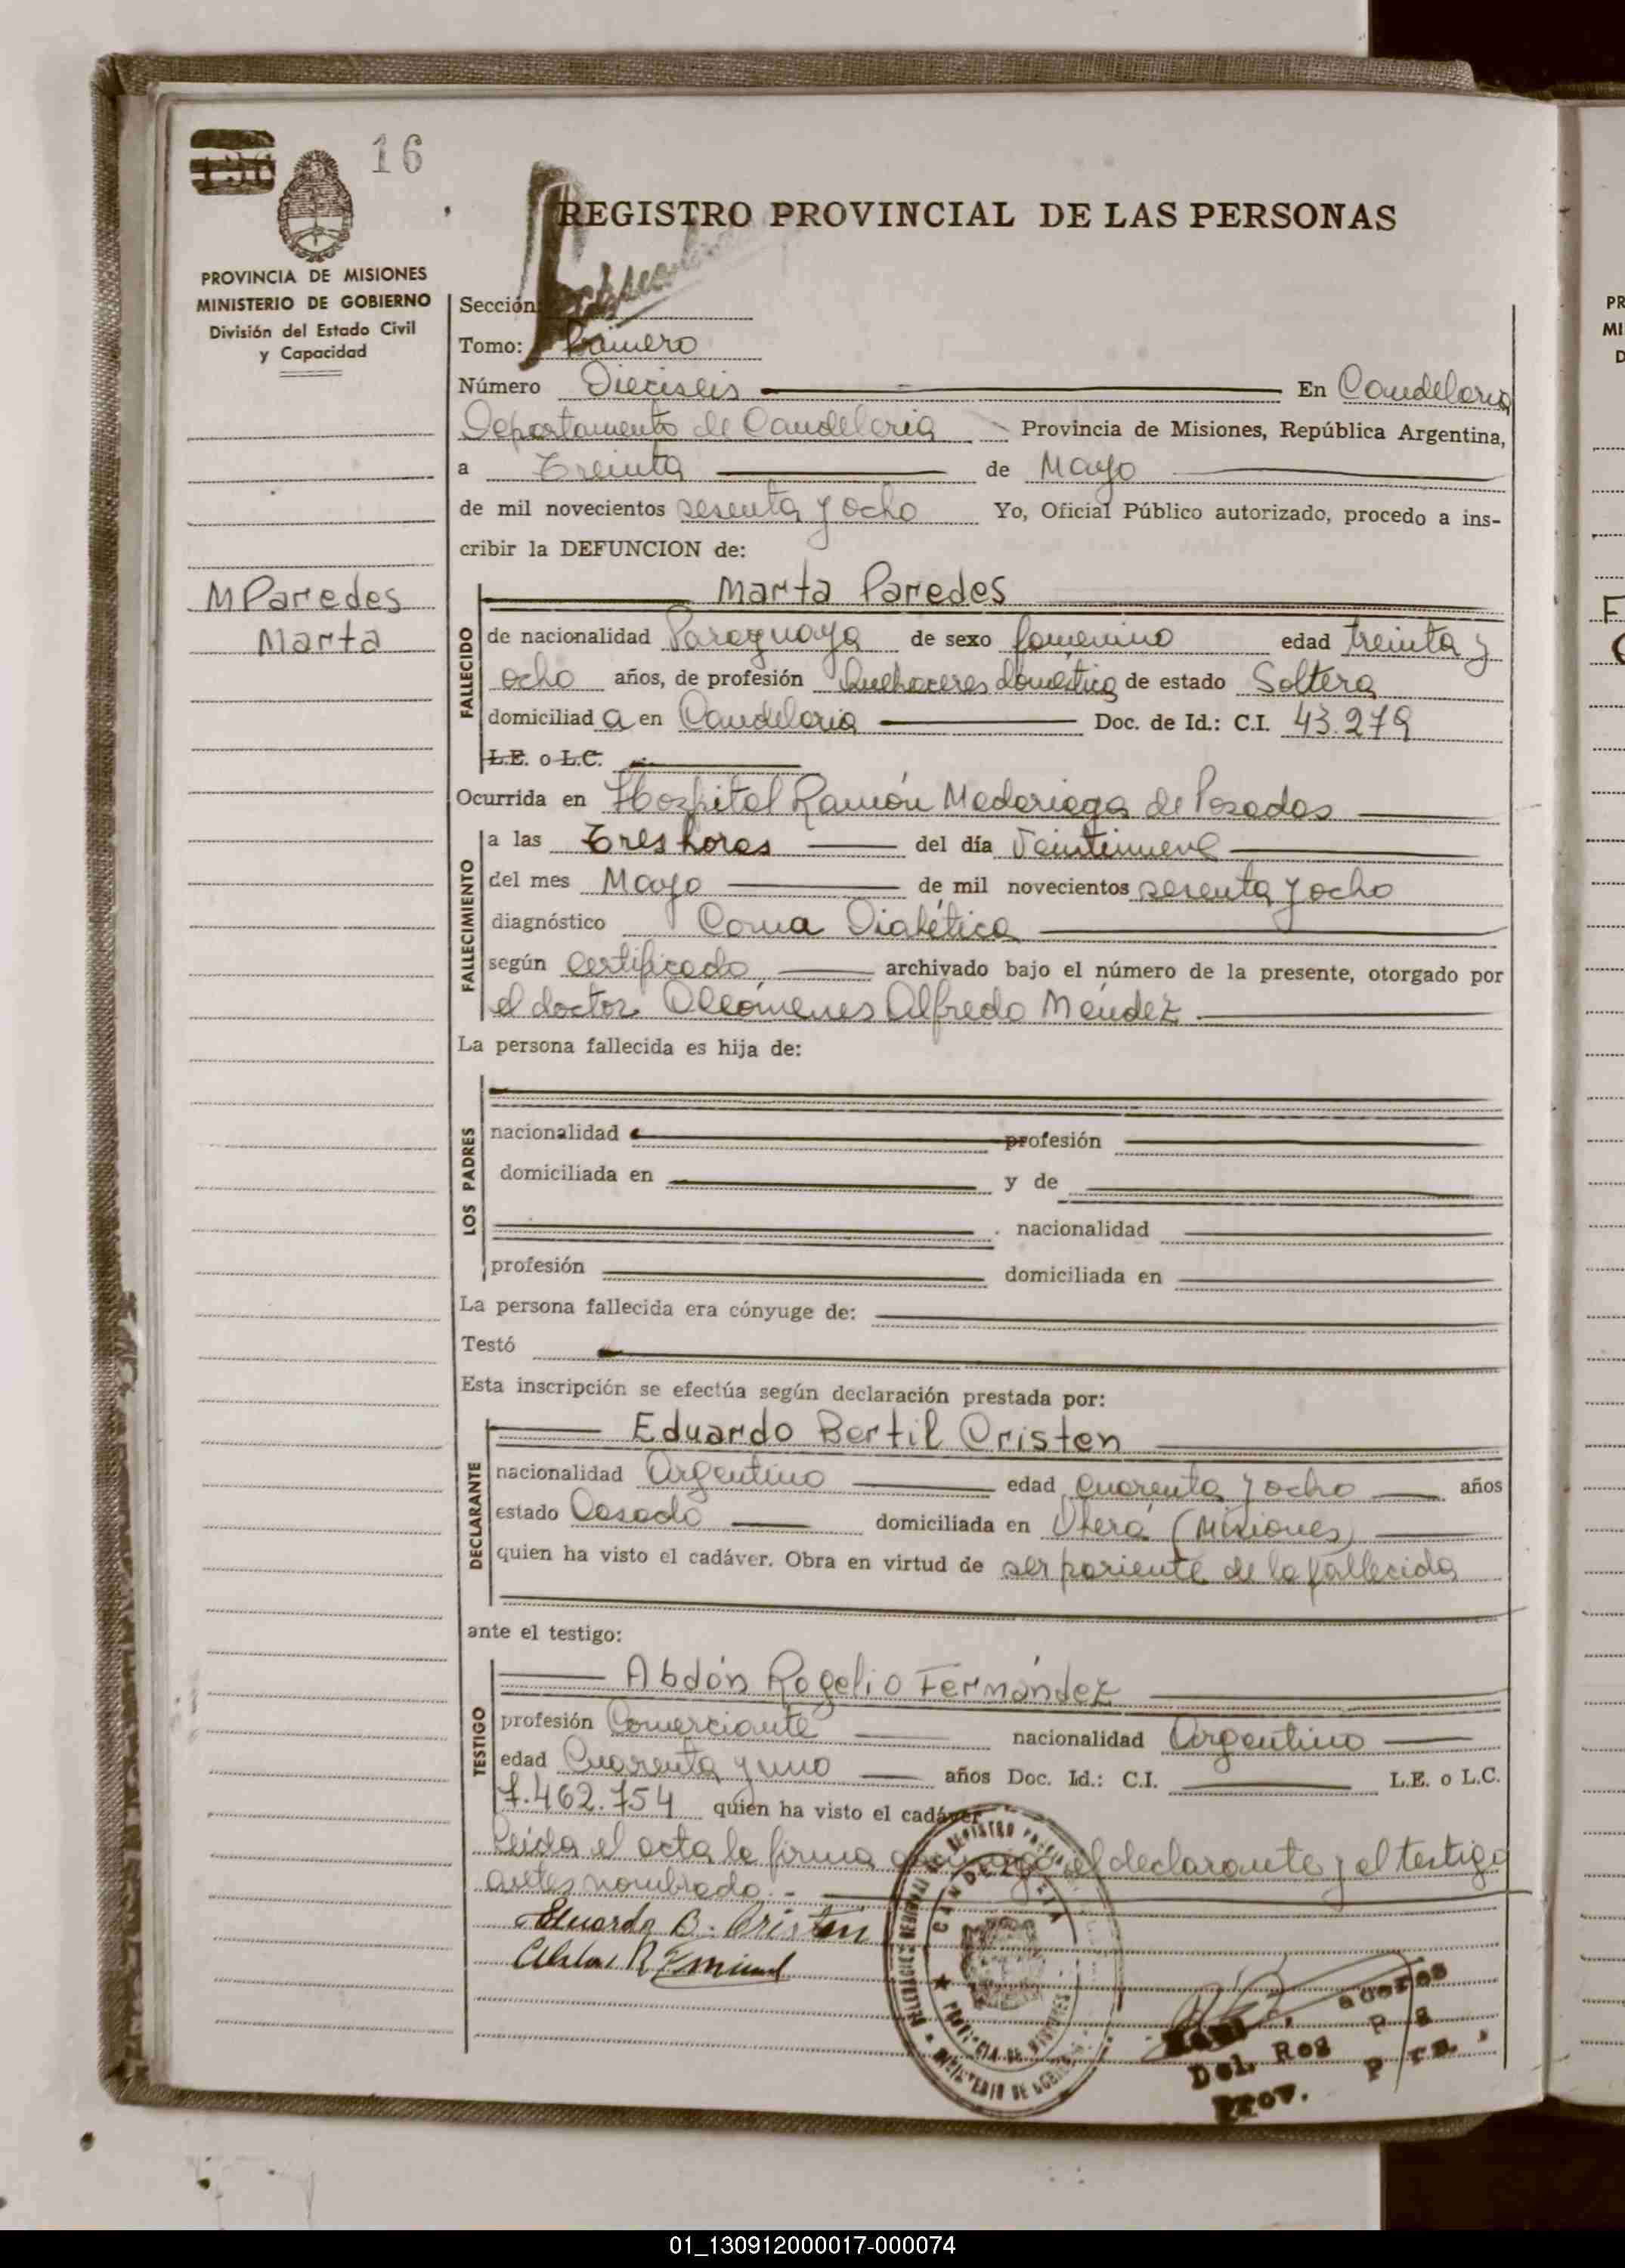 16
REGISTRO PROVINCIAL DE LAS PERSONAS
PROVINCIA DE MISIONES
MINISTERIO DE GOBIERNO
División del Estado Civil
y Capacidad
Sección
Tomo: Primero
Número Dieciseis En Candelaria
Departamento de Candelaria Provincia de Misiones, República Argentina,
a Treinta de Mayo
de mil novecientos sesenta y ocho Yo, Oficial Público autorizado, procedo a ins-
cribir la DEFUNCION de:
M Paredes
Marta
FALLECIDO
Marta Paredes
de nacionalidad Paraguaya de sexo femenino edad treinta y
ocho años, de profesión Quehaceres doméstica de estado Soltera
domiciliad a en Candelaria Doc. de Id.: C.I. 43.279
L.E. o L.C.
Ocurrida en Hospital Ramón Madariaga de Posadas
FALLECIMIENTO
a las Tres horas del día Veintinueve
del mes Mayo de mil novecientos sesenta y ocho
diagnóstico Coma Diabética
según Certificado archivado bajo el número de la presente, otorgado por
el doctor Alfredo Méndez
La persona fallecida es hija de:
LOS PADRES
nacionalidad profesión
domiciliada en y de
nacionalidad
profesión domiciliada en
La persona fallecida era cónyuge de:
Testó
Esta inscripción se efectúa según declaración prestada por:
DECLARANTE
Eduardo Bertil Cristen
nacionalidad Argentino edad cuarenta y ocho años
estado Casado domiciliada en Oberá (Misiones)
quien ha visto el cadáver. Obra en virtud de ser pariente de la fallecida
ante el testigo:
TESTIGO
Abdón Rogelio Fernández
profesión Comerciante nacionalidad Argentino
edad Cuarenta y uno años Doc. Id.: C.I. L.E. o L.C.
7.462.754 quien ha visto el cadáver
Leida el acta la firma conmigo el declarante y el testigo
antes nombrado.-
Eduardo B. Cristen
CANDELARIA
PROVINCIA DE MISIONES
Del. Reg
Prov.
01_130912000017-000074